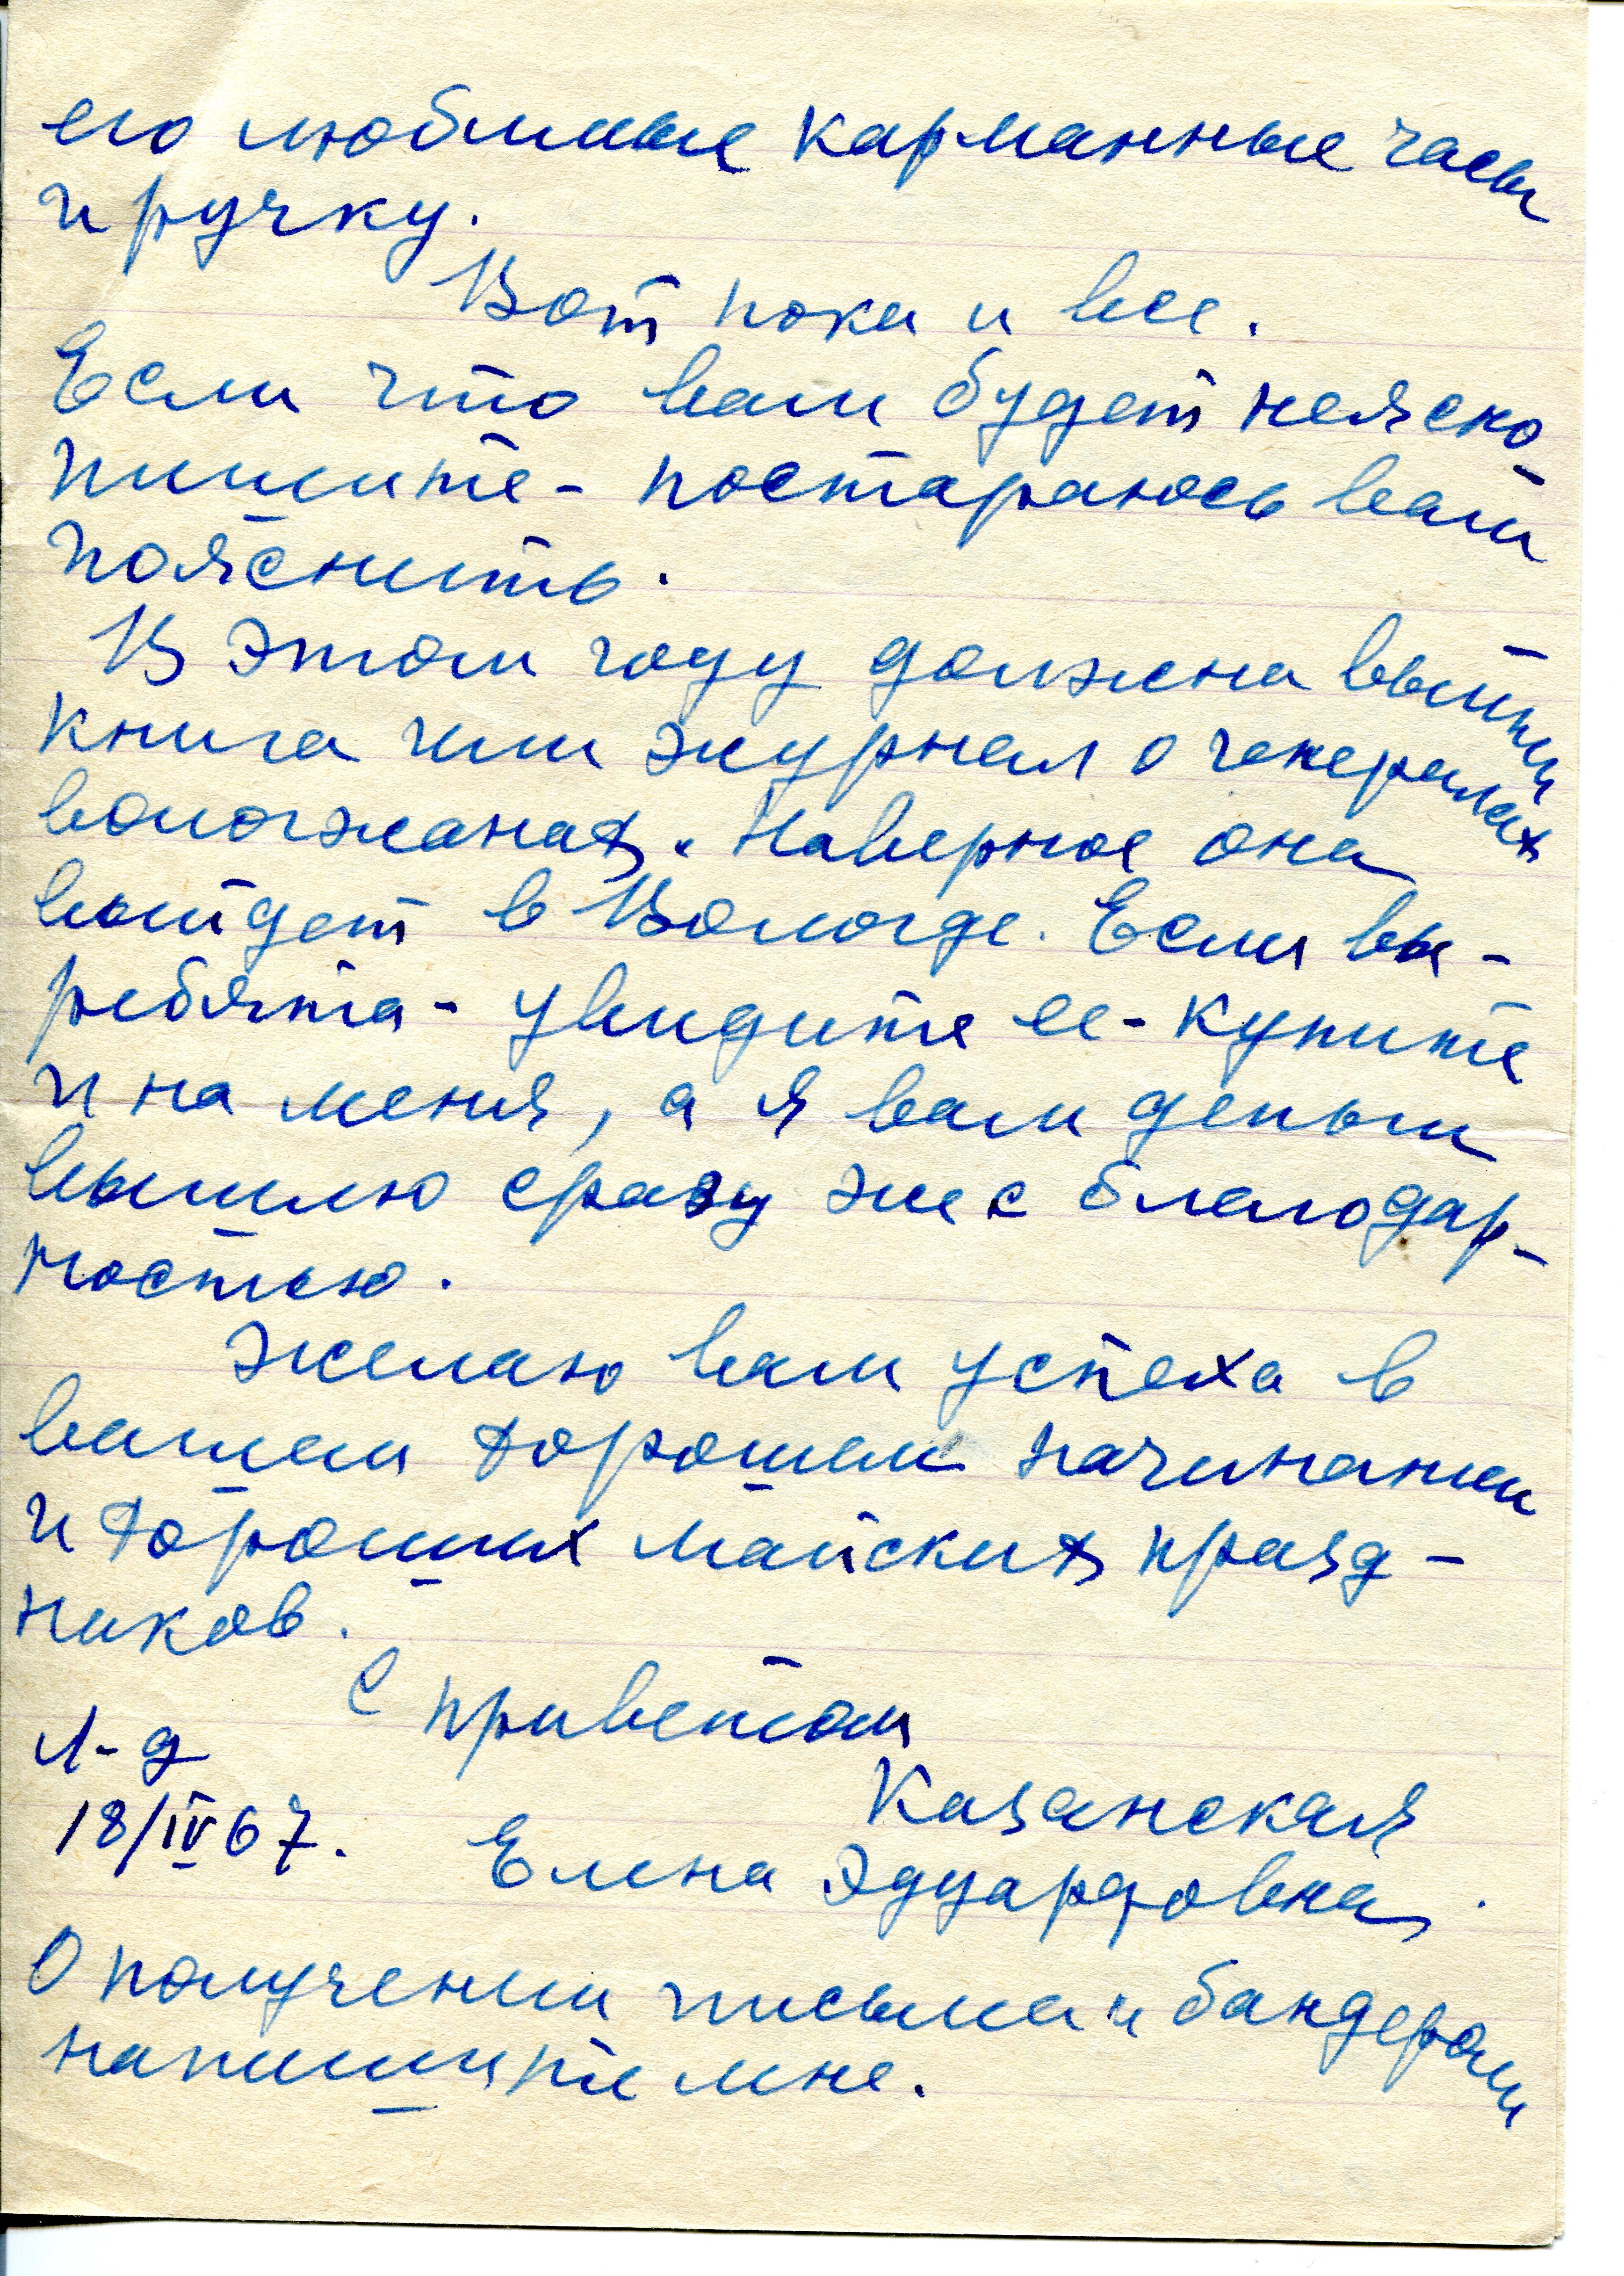 его любимые карманные часы
и ручку.
Вот пока и все.
Если что вам будет неясно-
пишите - постараюсь вам
пояснить.
В этом году должна выйти
книга или журнал о генералах
вологжанах. Наверное она
выйдет в Вологде. Если вы -
ребята - увидите ее - купите
и на меня, а я вам деньги
вышлю сразу же с благодар-
ностью.
Желаю вам успеха в
вашем хорошем начинании
и хороших майских празд-
ников.
С приветом
Л-д
Казанская
18/IV 67.
Елена Эдуардовна.
О получении письма и бандероли
напишите мне.